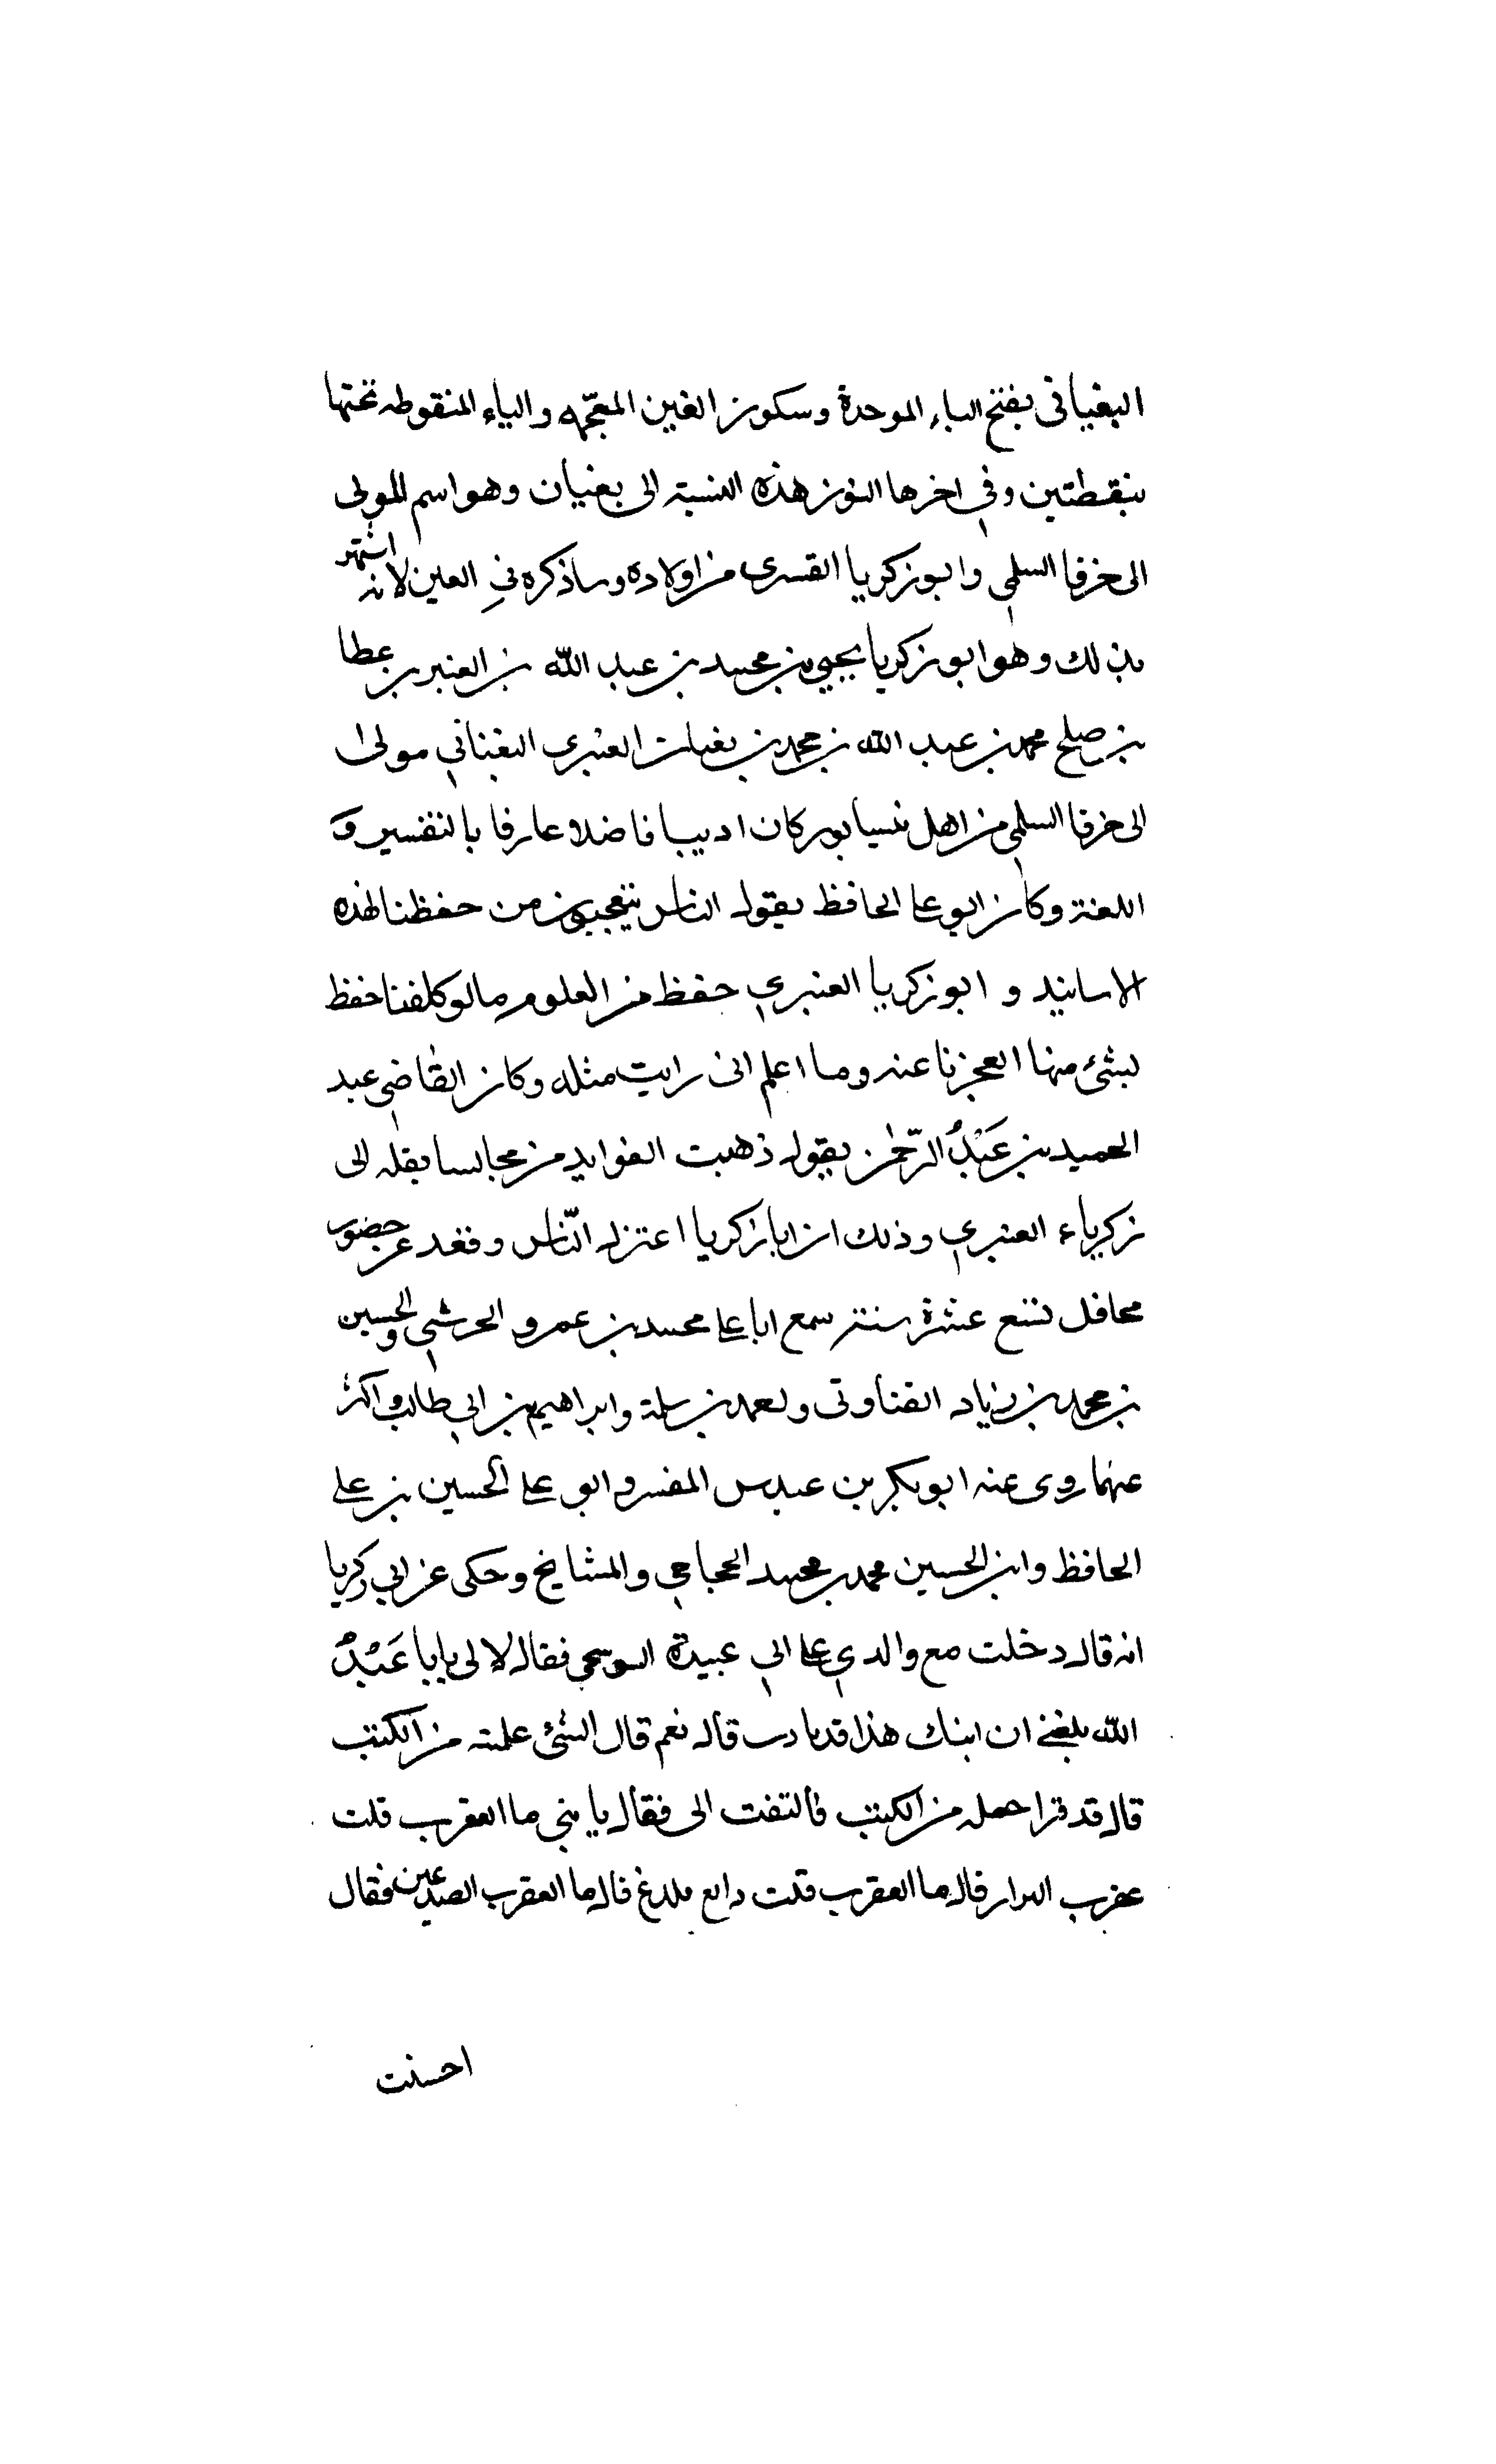 البغيانى بفتح الباء الموحدة وسكون الغين المعجمه والياء المنقوطه تحتها
بنقطتين وفي اخرها النون هذه النسبة الى بغيان وهو اسم المولى
الى خرقا السلمي وابو زكريا القسرى من اولاده وساذكره في العين لانه اشتهر
بذلك وهو ابو زكريا يحيى بن محمد بن عبد الله بن العنبر بن عطا
بن صلح محمد بن عبد الله بن محمد بن بغيان العنبرى البغيانى مولى ا
لى خرقا السلمى من اهل نيسابور كان اديبا فاضلا عارفا بالتفسير و
اللغة وكان ابو على الحافظ يقول الناس يتعجبون من حفظنا لهذه
الاسانيد و ابو زكريا العنبري حفظ من العلوم مالو كلفنا حفظ
بشئ منها العجزنا عنه وما اعلم انى رايت مثله وكان القاضى عبد
الحميد بن عَبْدُ الرّحمٰن يقول ذهبت الفوايد من مجالسا بقله الى
زكرياء العنبري وذلك ان ابا زكريا اعتزل النّاس وفغد عن حضور
محافل تسع عشرة سنة سمع ابا على محمد بن عمرو الحرشي والحسين
بن محمد بن زياد القتاوتى و بن سلمة وابراهيم بن ابي طالب واكثر
عنهما روى عنه ابو بكر بن عبدس المفسر و ابو على الحسين بن على
الحافظ وابن الحسين محمد بن محمد الحجاجي والمشايخ وحكى عن ابي زكريا
انه قال دخلت مع والدي على ابي عبيدة فقال لا لى يابا عَبْدُ
الله بلغنى ان ابنك هذا قد تادب قال نعم قال الشئ علمته من الكتب
قال قد قرا حمله من الكتب فالتفت الى فقال يا بنى ما العقرب قلت
عقرب الدار قال ما العقرب قلت تلدغ قال ما العقرب الصدغين فقال
احسنت